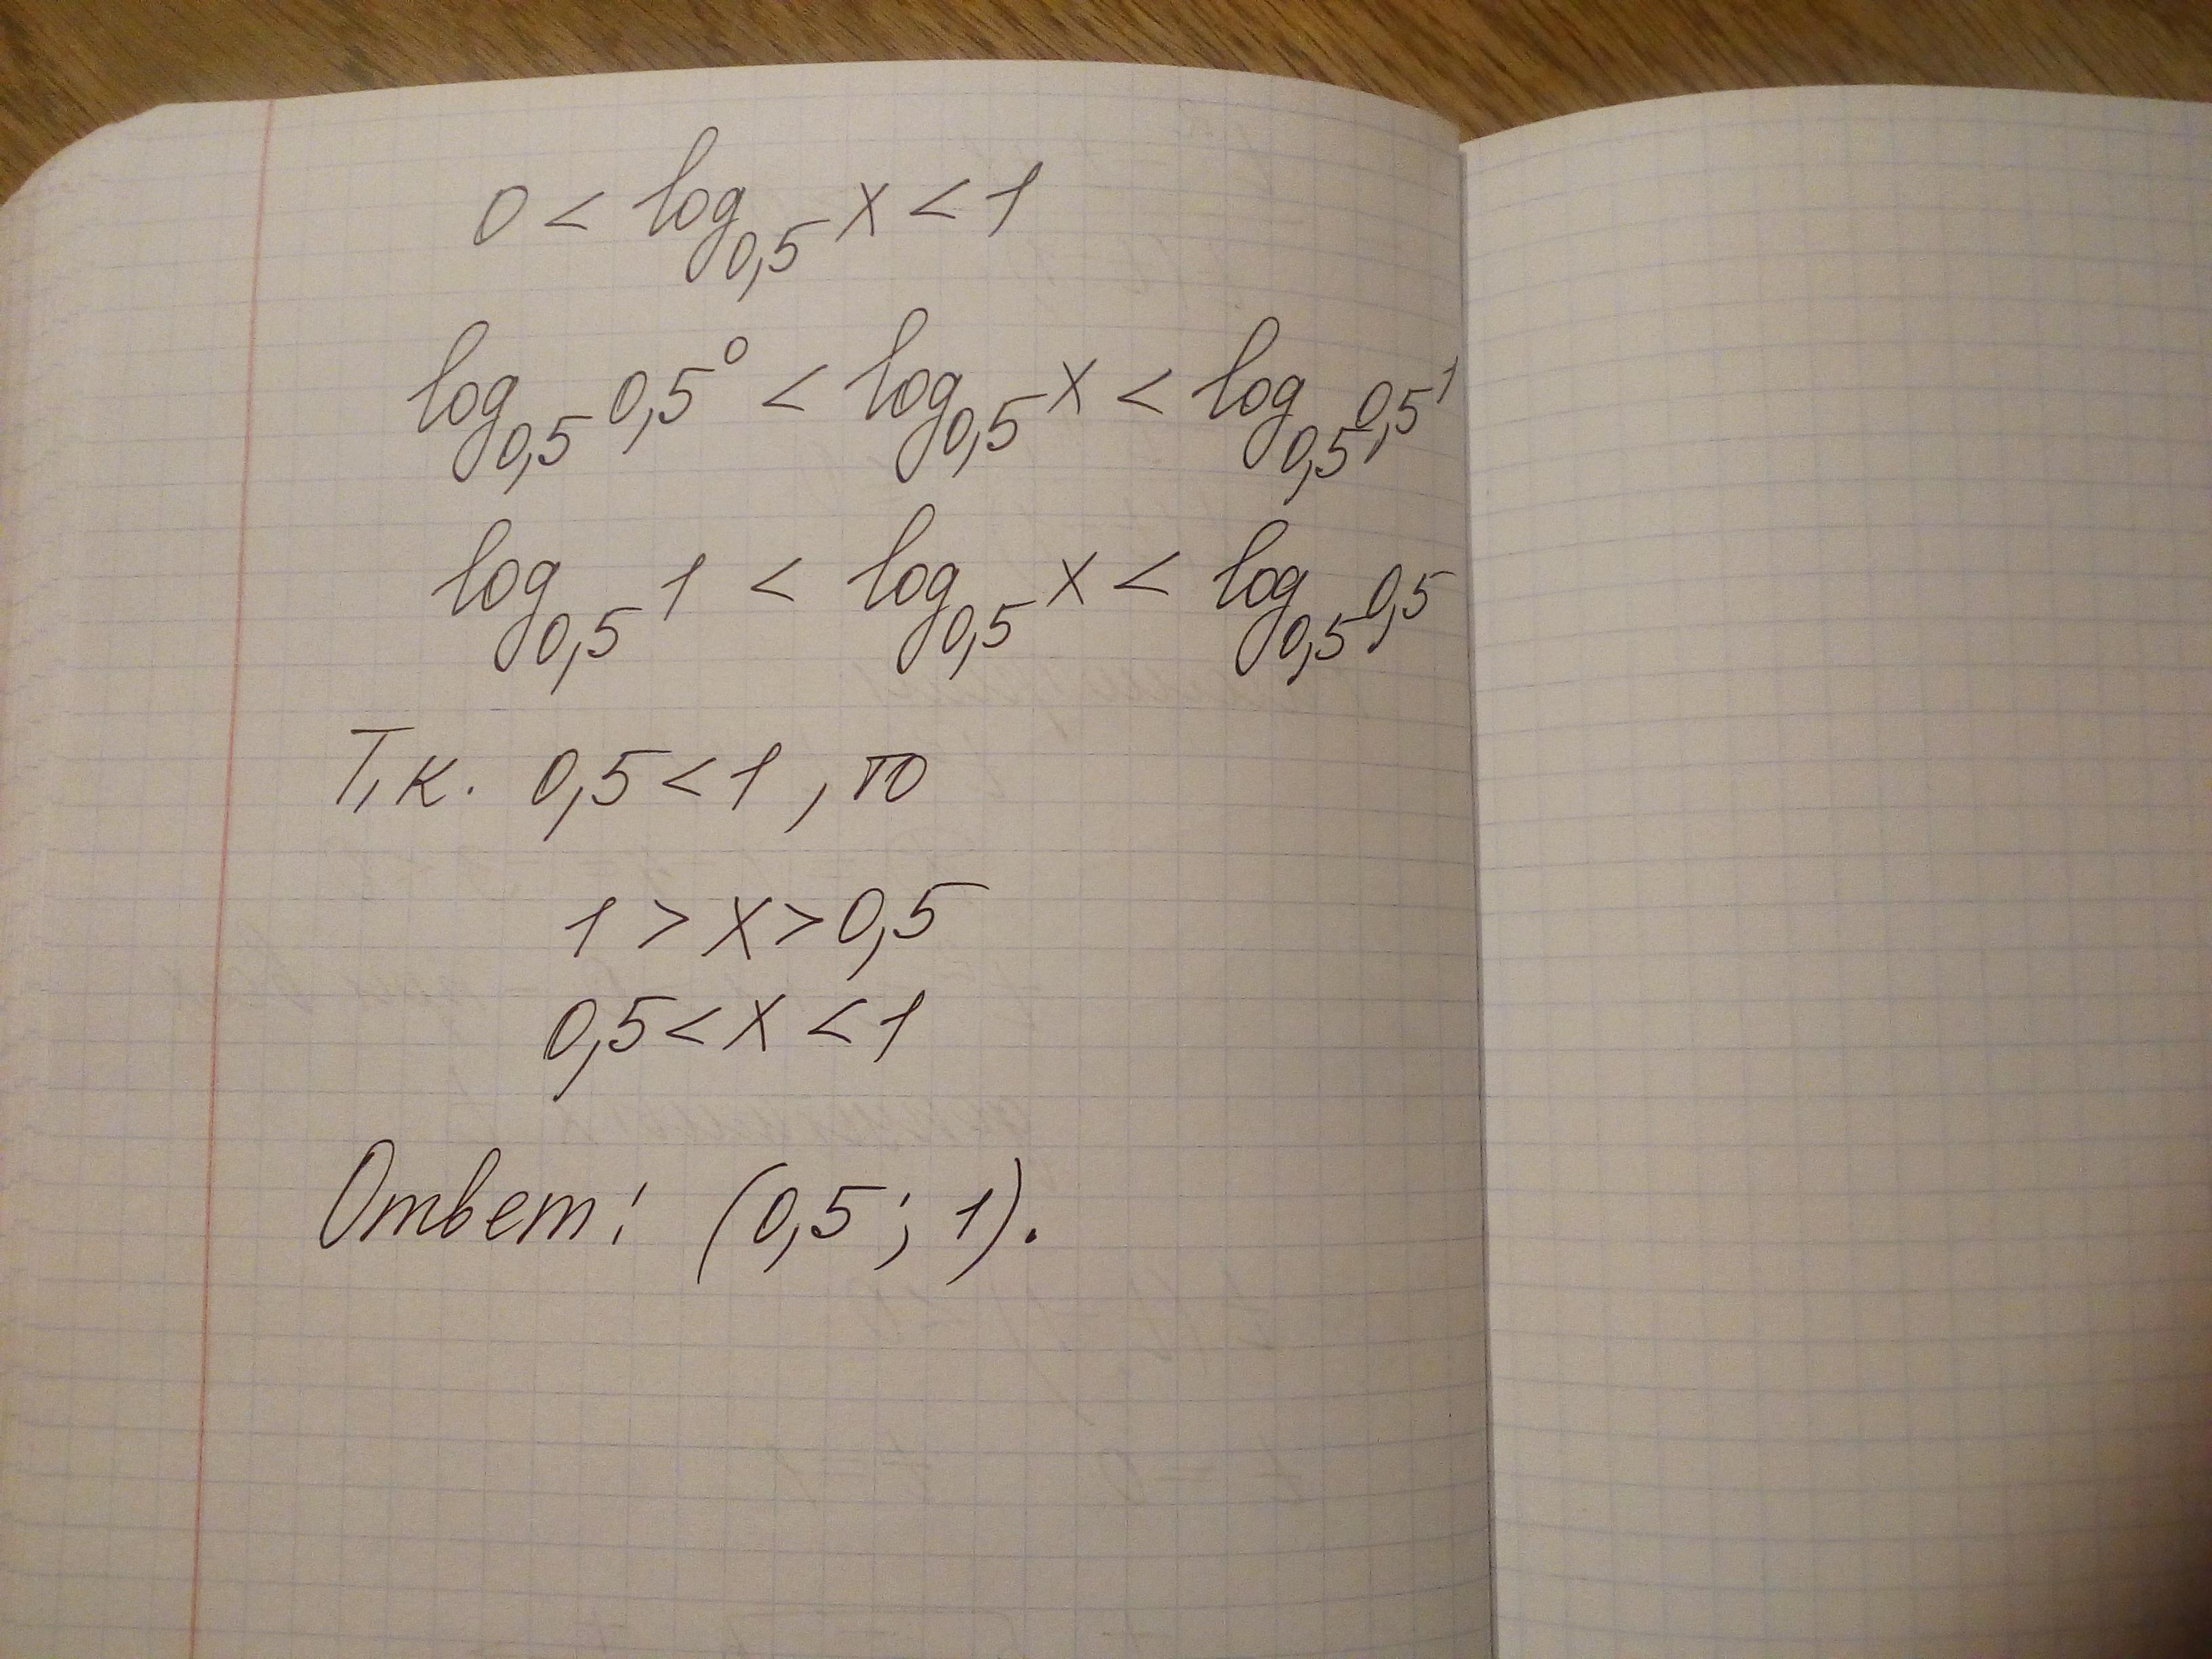 0 < log₀,₅ x < 1
log₀,₅ 0,5⁰ < log₀,₅ x < log₀,₅ 0,5¹
log₀,₅ 1 < log₀,₅ x < log₀,₅ 0,5
Т.к. 0,5 < 1, то
1 > x > 0,5
0,5 < x < 1
Ответ: (0,5; 1).